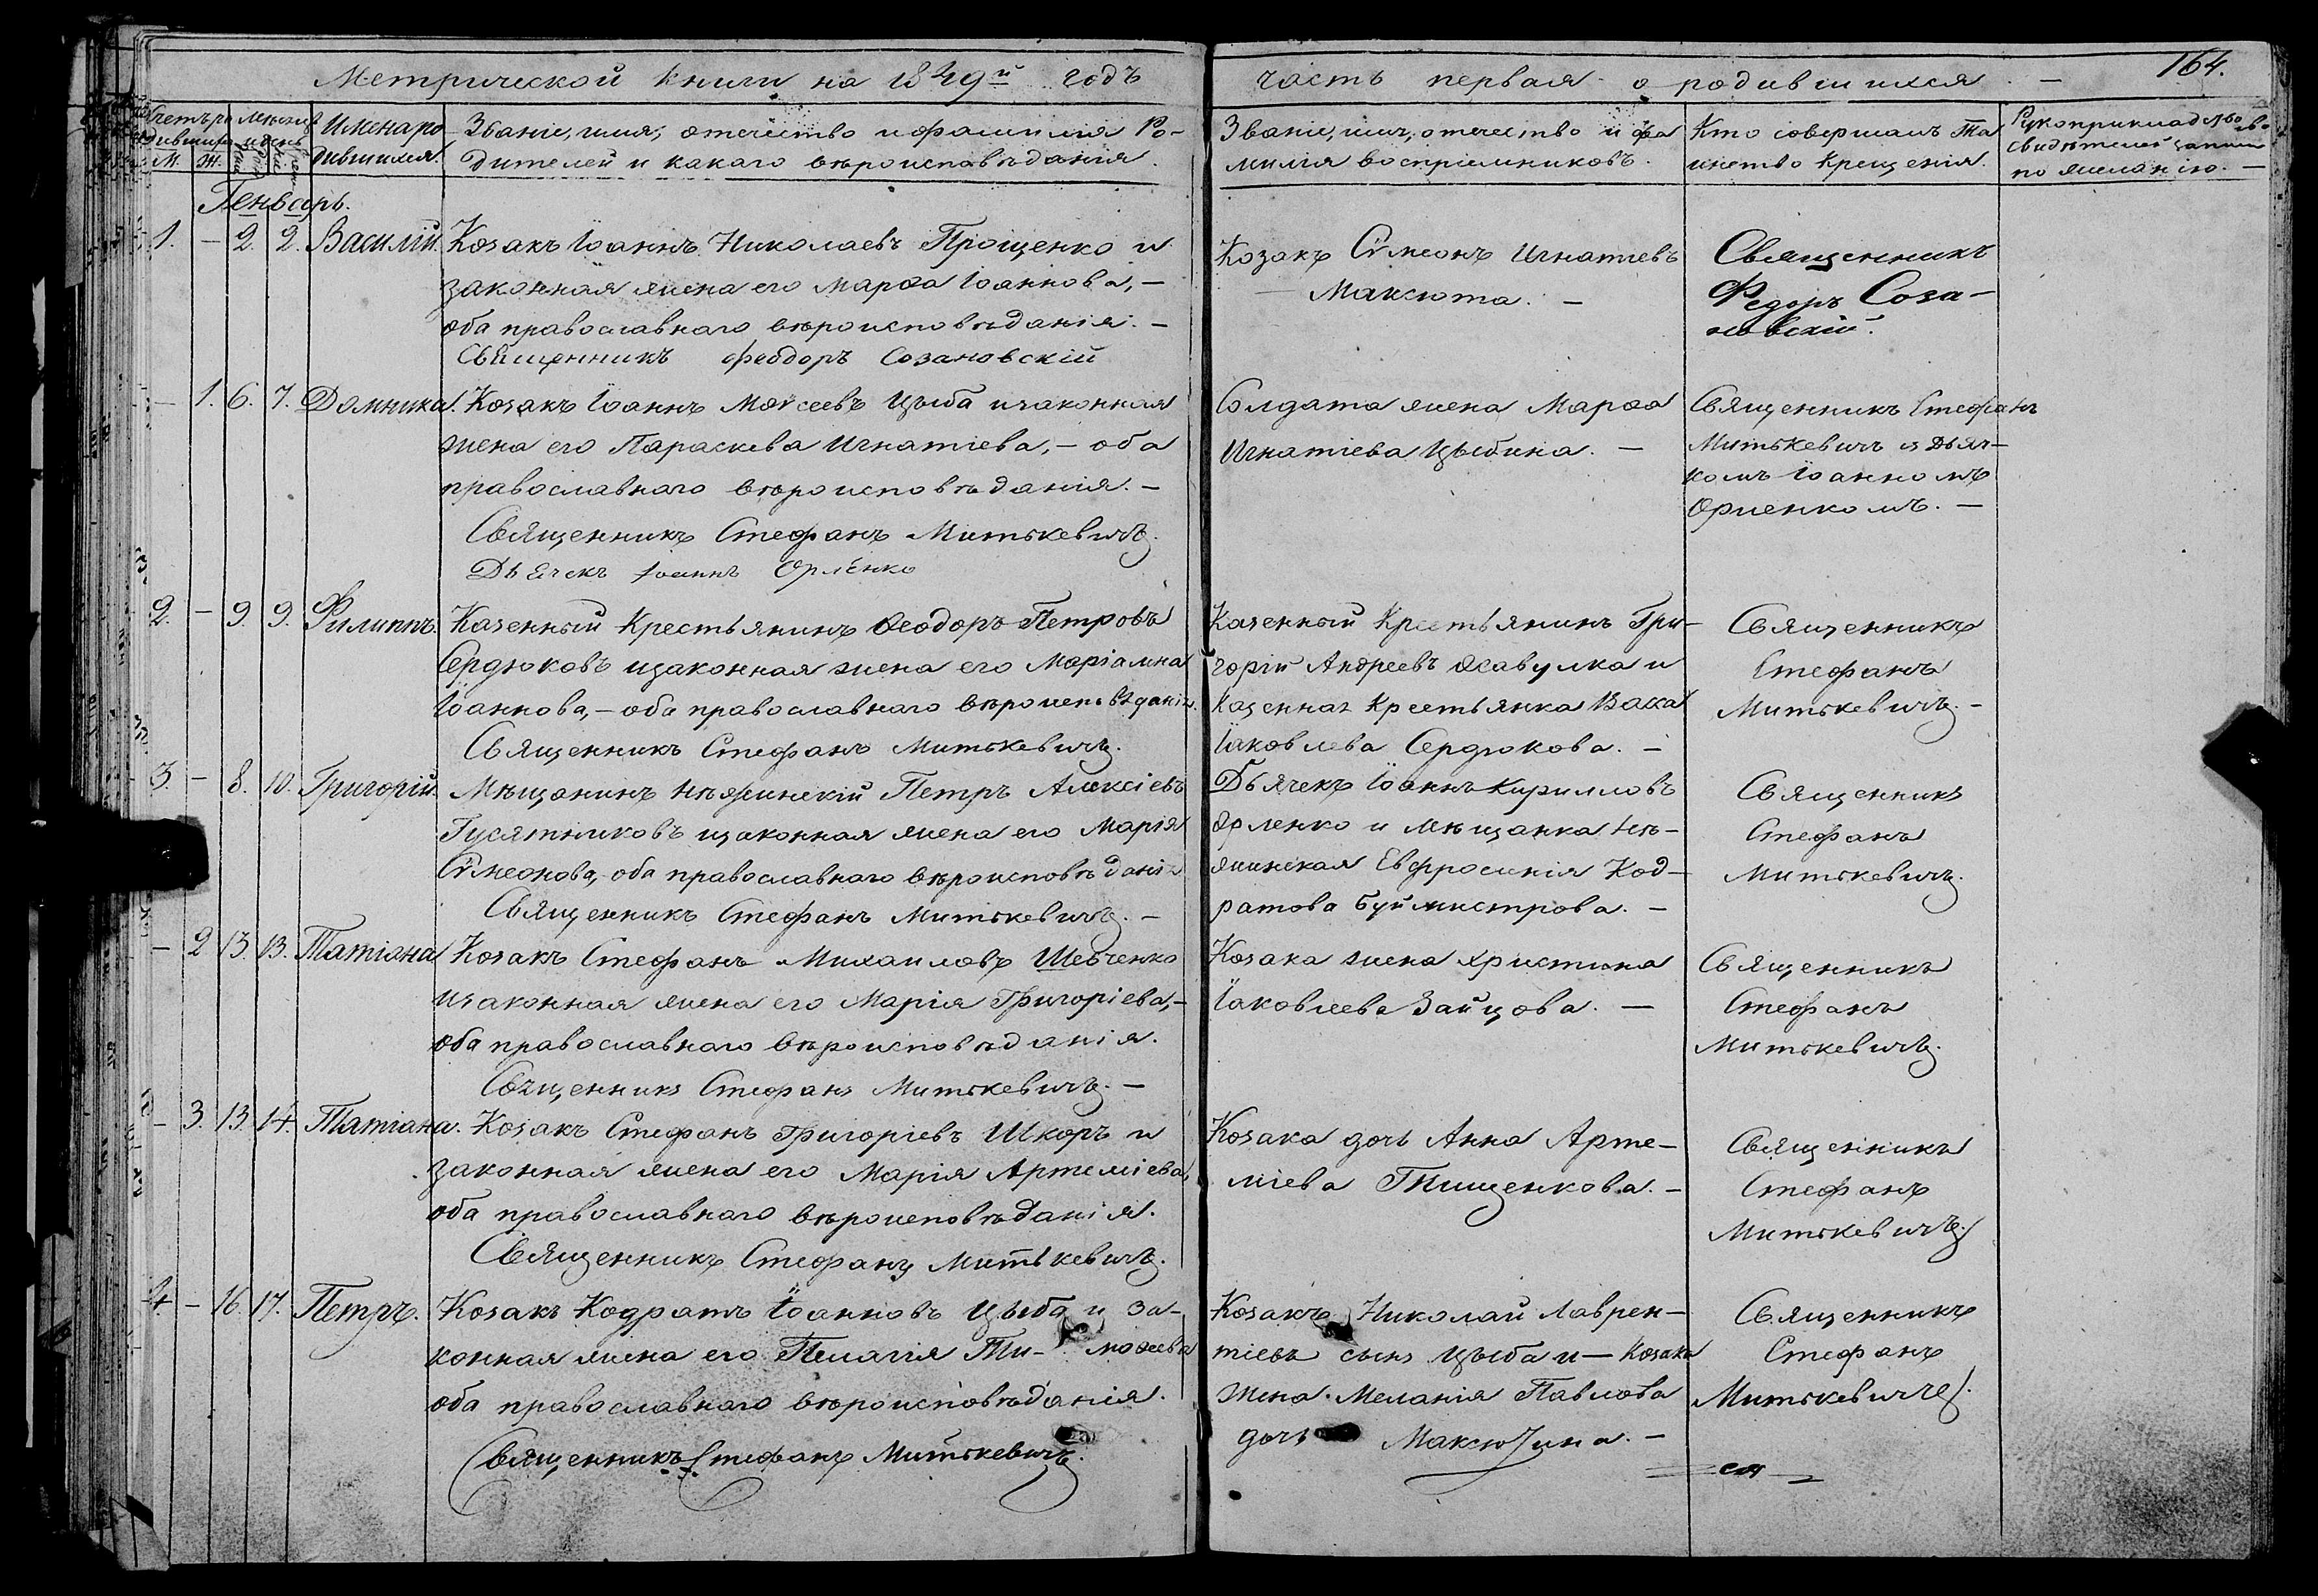 Метрической книги на 1849й годъ
часть первая о родившихся. —
164.
Счетъ ро
дившихся
Мѣсяцъ
и день
М. Ж.
Имена ро
дившихся.
Званіе, имя, отечество и фамилія Ро-
дителей и какаго вѣроисповѣданія.
Званіе, имя, отечество и фа
милія воспріемниковъ.
Кто совершалъ Та
инство Крещенія.
Рукоприкладство
свидѣтелей записи
по желанію. —
Генварь.
1. — 2. 2. Василій.
Козакъ Іоаннъ Николаевъ Прощенко и
законная жена его Марѳа Іоаннова, —
оба православнаго вѣроисповѣданія. —
Священникъ Феодоръ Созановскій
Козакъ Сѵмеонъ Игнатіевъ
Максюта. —
Священникъ
Федоръ Соза-
новскій.
— 1. 6. 7. Домника.
Козакъ Іоаннъ Моѵсеевъ Цыба и законная
жена его Параскева Игнатіева, — оба
православнаго вѣроисповѣданія. —
Священникъ Стефанъ Митькевичъ.
Дьячекъ Іоаннъ Орленко
Солдата жена Марѳа
Игнатіева Цыбина. —
Священникъ Стефанъ
Митькевичъ з Дьяч-
комъ Іоанномъ
Орленкомъ. —
2. — 9. 9. Филиппъ.
Казенный Крестьянинъ Ѳеодоръ Петровъ
Сердюковъ и законная жена его Маріамна
Іоаннова, — оба православнаго вѣроисповѣданія.
Священникъ Стефанъ Митькевичъ.
Казенный Крестьянинъ Гри-
горій Андреевъ Осавулка и
Казенная Крестьянка Васса
Іаковлева Сердюкова. —
Священникъ
Стефанъ
Митькевичъ. —
3. — 8. 10. Григорій.
Мѣщанинъ Нѣжинскій Петръ Алексіевъ
Гусятниковъ и законная жена его Марія
Сѵмеонова, — оба православнаго вѣроисповѣданія
Священникъ Стефанъ Митькевичъ. —
Дьячекъ Іоаннъ Кирилловъ
Орленко и Мѣщанка Нѣ-
жинская Евфросинія Код-
ратова Буймистрова. —
Священникъ
Стефанъ
Митькевичъ.
— 2 13. 13. Татіана
Козакъ Стефанъ Михаиловъ Шевченко
и законная жена его Марія Григоріева, —
оба православнаго вѣроисповѣданія.
Священникъ Стефанъ Митькевичъ. —
Козака жена Христина
Іаковлева Зайцова. —
Священникъ
Стефанъ
Митькевичъ.
— 3. 13. 14. Татіана.
Козакъ Стефанъ Григоріевъ Шкоръ и
законная жена его Марія Артеміева,
оба православнаго вѣроисповѣданія.
Священникъ Стефанъ Митькевичъ.
Козака дочь Анна Арте-
міева Тищенкова. —
Священникъ
Стефанъ
Митькевичъ.
4. — 16. 17. Петръ.
Козакъ Кодратъ Іоанновъ Цыба и за-
конная жена его Пелагія Ти- моѳеева
оба православнаго вѣроисповѣданія.
Священникъ Стефанъ Митькевичъ.
Козакъ Николай Лаврен-
тіевъ сынъ Цыба и — Козака
жена Меланія Павлова
дочь Максютина. —
Священникъ
Стефанъ
Митькевичъ.
ся